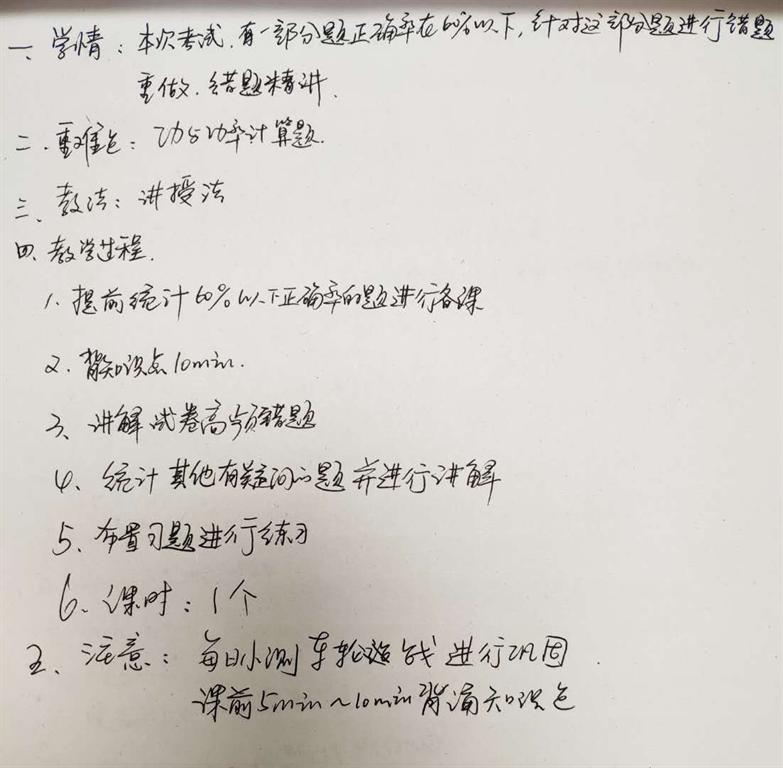 一、学情：本次考试，有一部分题正确率在60%以下，针对这部分题进行错题
重做、错题精讲.
二、重难点：功与功率计算题.
三、教法：讲授法
四、教学过程.
1、提前统计60%以下正确率的题进行备课
2、背知识点10min.
3、讲解试卷高频错题
4、统计其他有疑问的题并进行讲解
5、布置习题进行练习
6、课时：1个
五、注意：每日小测车轮战进行巩固.
课前5min～10min背诵知识点